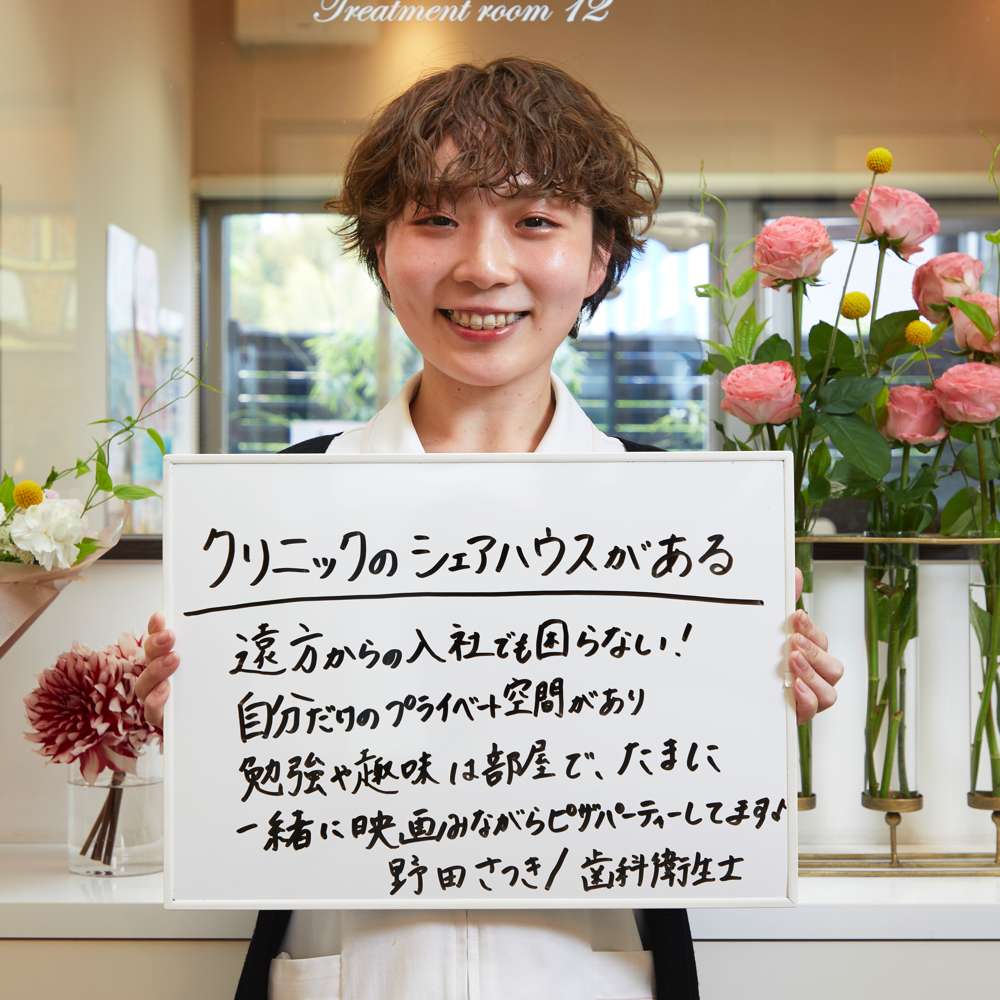 Treatment room 12
クリニックのシェアハウスがある
遠方からの入社でも困らない!
自分だけのプライベート空間があり
勉強や趣味は部屋で、たまに
一緒に映画みながらピザパーティーしてます♪
野田さつき/歯科衛生士